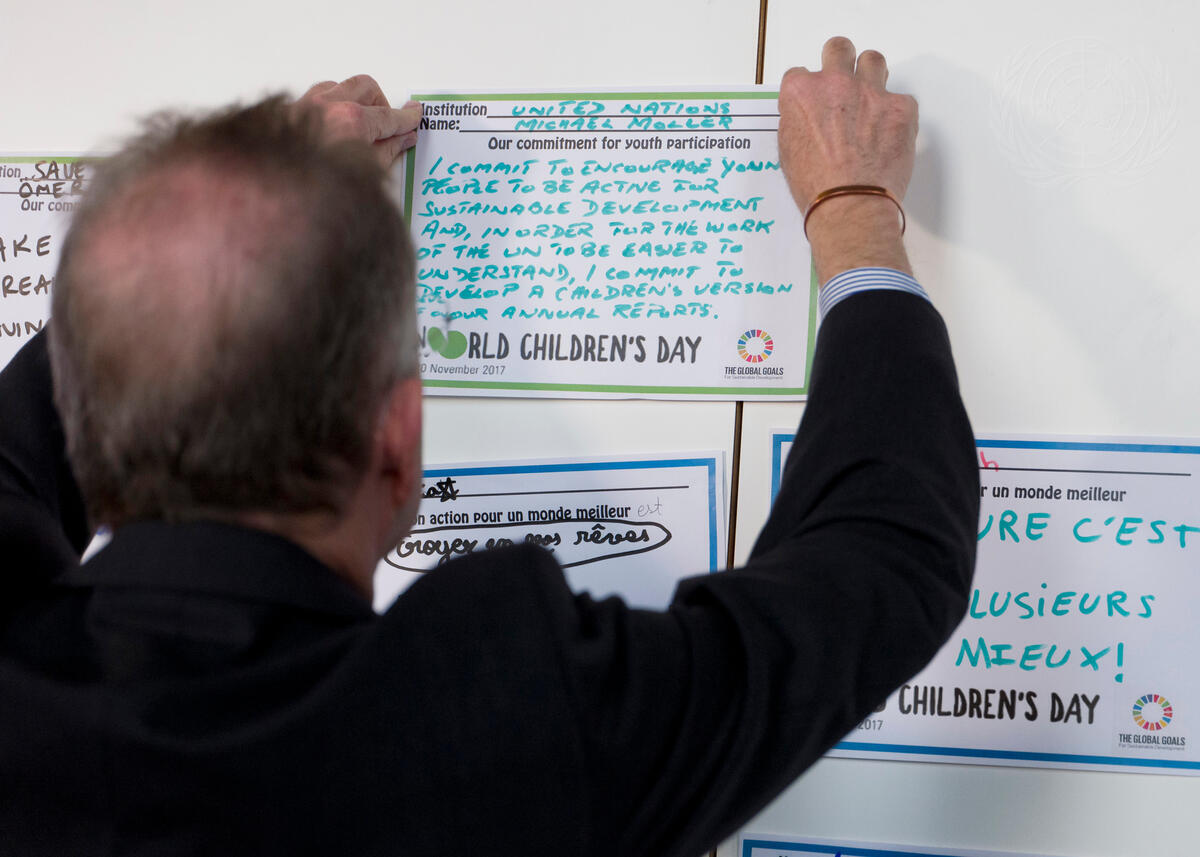 tion SAVE
ÖMER
Our com
AKE
REA
Institution UNITED NATIONS
Name: MICHAEL MOLLER
Our commitment for youth participation
I COMMIT TO ENCOURAGE YOUN
PEOPLE TO BE ACTIVE FOR
SUSTAINABLE DEVELOPMENT
AND, IN ORDER FOR THE WORK
OF THE UN TO BE EASIER TO
UNDERSTAND, I COMMIT TO
DEVELOP A CHILDREN'S VERSION
OUR ANNUAL REPORTS.
WORLD CHILDREN'S DAY
0 November 2017
THE GLOBAL GOALS
For Sustainable Development
on action pour un monde meilleur est
Croyez en vos rêves
h
r un monde meilleur
URE C'EST
LUSIEURS
MIEUX!
D CHILDREN'S DAY
2017
THE GLOBAL GOALS
For Sustainable Development